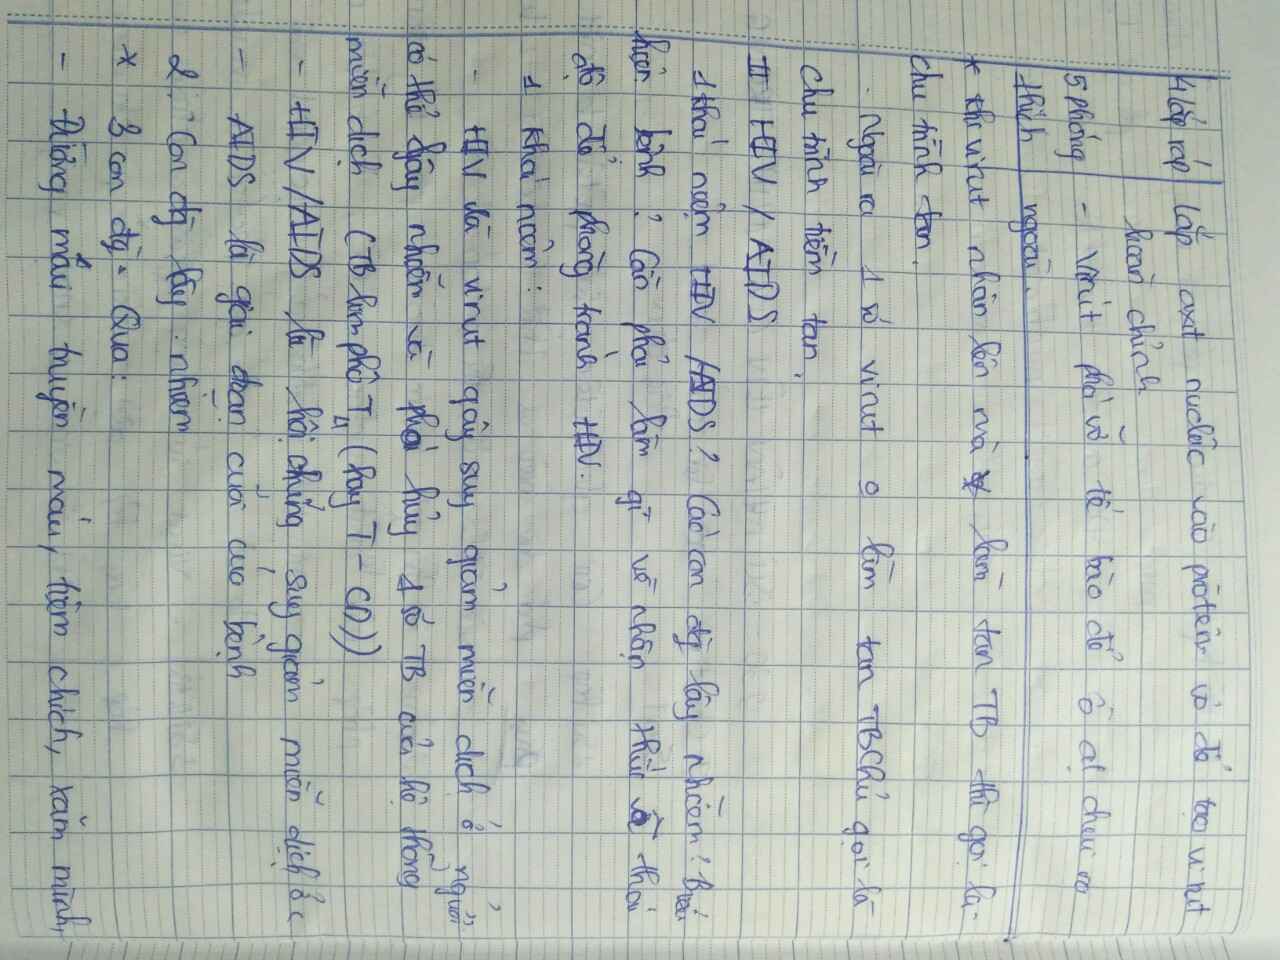 4 lắp ráp lắp axit nuclêic vào prôtêin vỏ để tạo virut
hoàn chỉnh
5 phóng - virut phá vỡ tế bào để ồ ạt chui ra
thích ngoài.
* khi virut nhân lên mà làm tan TB thì gọi là
chu trình tan.
. Ngoài ra 1 số virut o làm tan TBChủ gọi là
Chu trình tiềm tan.
II HIV / AIDS
1 khái niệm HIV /AIDS? Các con đg lây nhiễm? Biểu
hiện bệnh? Cần phải làm gì về nhận thức và thái
độ để phòng tránh HIV.
1 khái niệm:
- HIV là virut gây suy giảm miễn dịch ở người
có thể gây nhiễm và phá hủy 1 số TB của hệ thống
miễn dịch (TB limphô T4 (hay T - CD))
- HIV/AIDS là hội chứng suy giảm miễn dịch ở
- AIDS là giai đoạn cuối của bệnh
2. Con đg lây nhiễm
* 3 con đg: Qua:
- Đường máu truyền máu, tiêm chích, xăm mình,